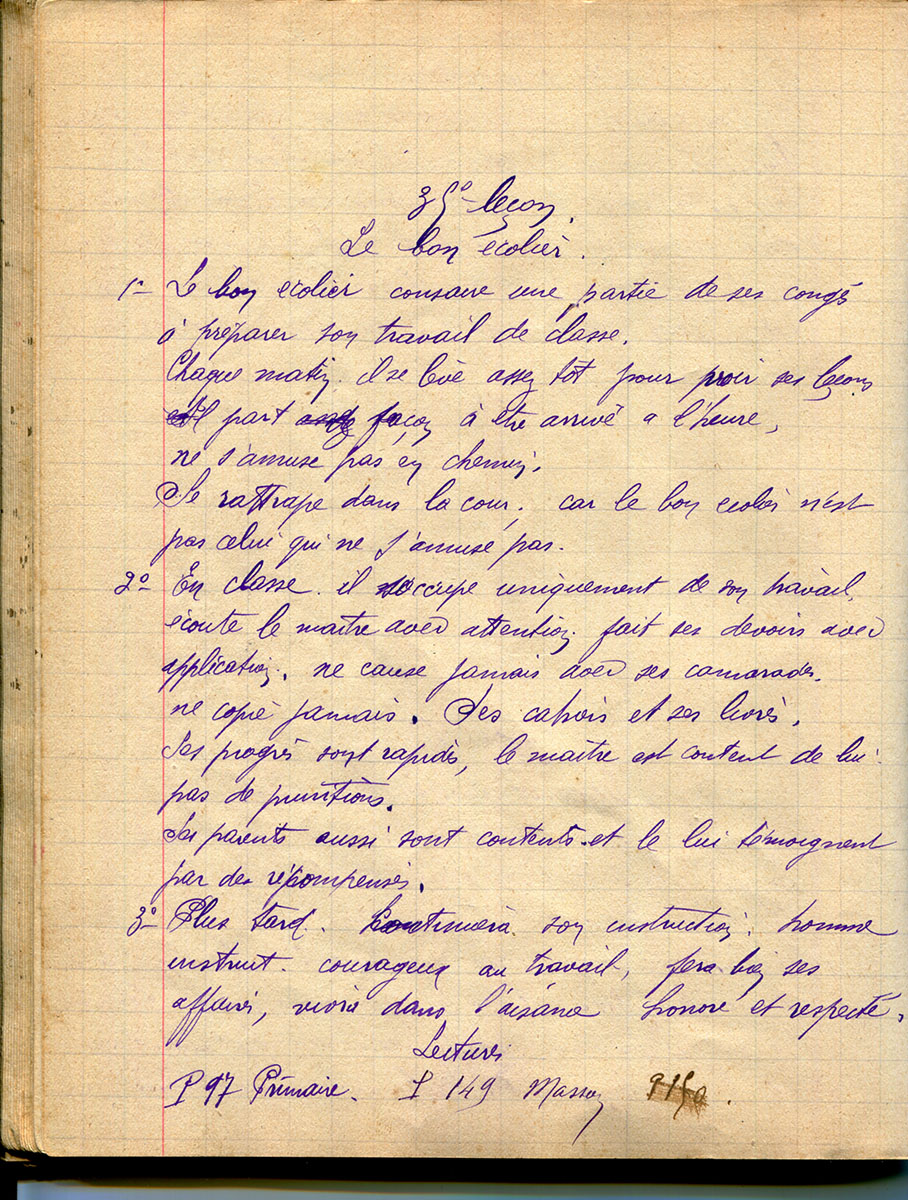 35e leçon.
Le bon écolier.
1o Le bon écolier consacre une partie de ses congés
à préparer son travail de classe.
Chaque matin il se lève assez tôt pour revoir ses leçons
Il part façon à être arrivé a l'heure,
ne s'amuse pas en chemin.
Se rattrape dans la cour, car le bon écolier n'est
pas celui qui ne s'amuse pas.
2o En classe. il s'occupe uniquement de son travail,
écoute le maître avec attention, fait ses devoirs avec
application, ne cause jamais avec ses camarades.
ne copie jamais. Ses cahiers et ses livres.
Ses progrès sont rapides, le maître est content de lui
pas de punitions.
Ses parents aussi sont contents et le lui témoignent
par des récompenses.
3o Plus tard. continuera son instruction, homme
instruit. courageux au travail, fera bien ses
affaires, vivra dans l'aisance honoré et respecté.
Lectures
P 97 Primaire. P 149 Massoy